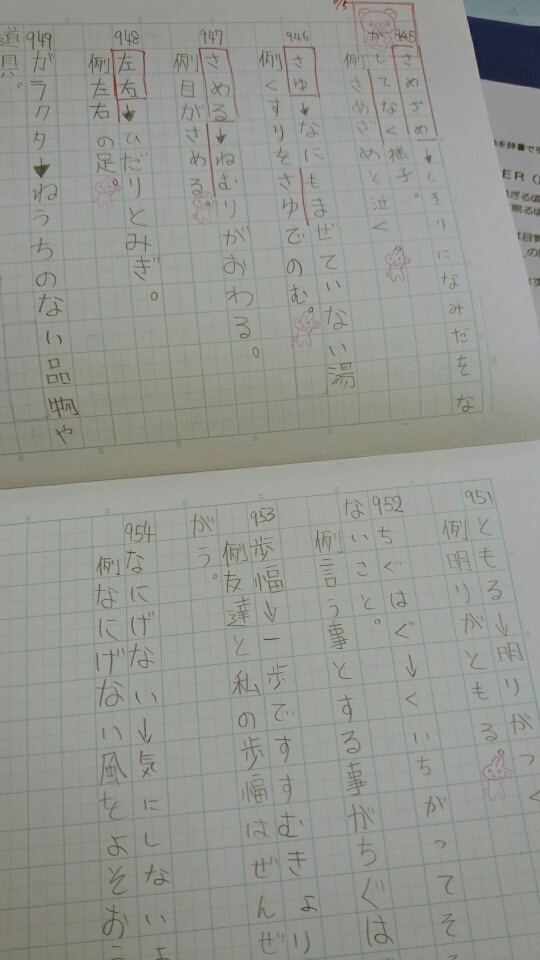 945
さめざめ→しきりになみだをな
がしてなく様子。
例さめざめと泣く
946
さゆ→なにもまぜていない湯
例くすりをさゆでのむ。
947
さめる→ねむりがおわる。
例目がさめる。
948
左右→ひだりとみぎ。
例左右の足。
949
ガラクタ→ねうちのない品物や
道具。
951
ともる→明りがつく
例明りがともる
952
ちぐはぐ→くいちがってそろ
ないこと。
例言う事とする事がちぐは
953
歩幅→一歩ですすむきょり
例友達と私の歩幅はぜんぜ
がう。
954
なにげない→気にしないよ
例なにげない風をよそおう